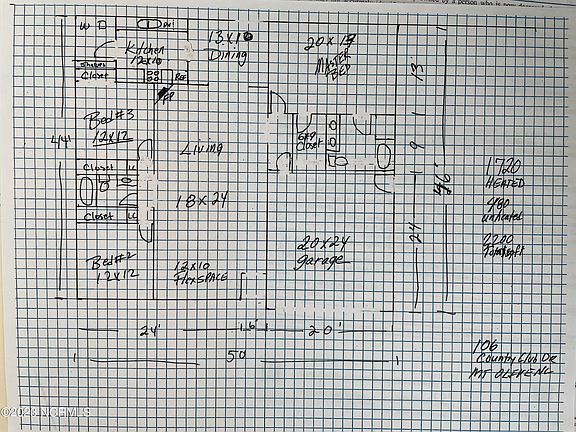 W D
DW
13x10
Dining
20 x 13
MASTER
BED
Kitchen
12x10
Shelves
Closet
REF
FP
13
Bed#3
12x12
44'
Living
Closet
1
9
1
46'
1720
HEATED
480
unheated
2200
Total sqft
Closet
LC
18 x 24
Closet
LC
20x24
garage
24
Bed#2
12x12
12x10
FlexSPACE
24'
6'
20'
50
106
Country Club Dr
MT OLIVE NC